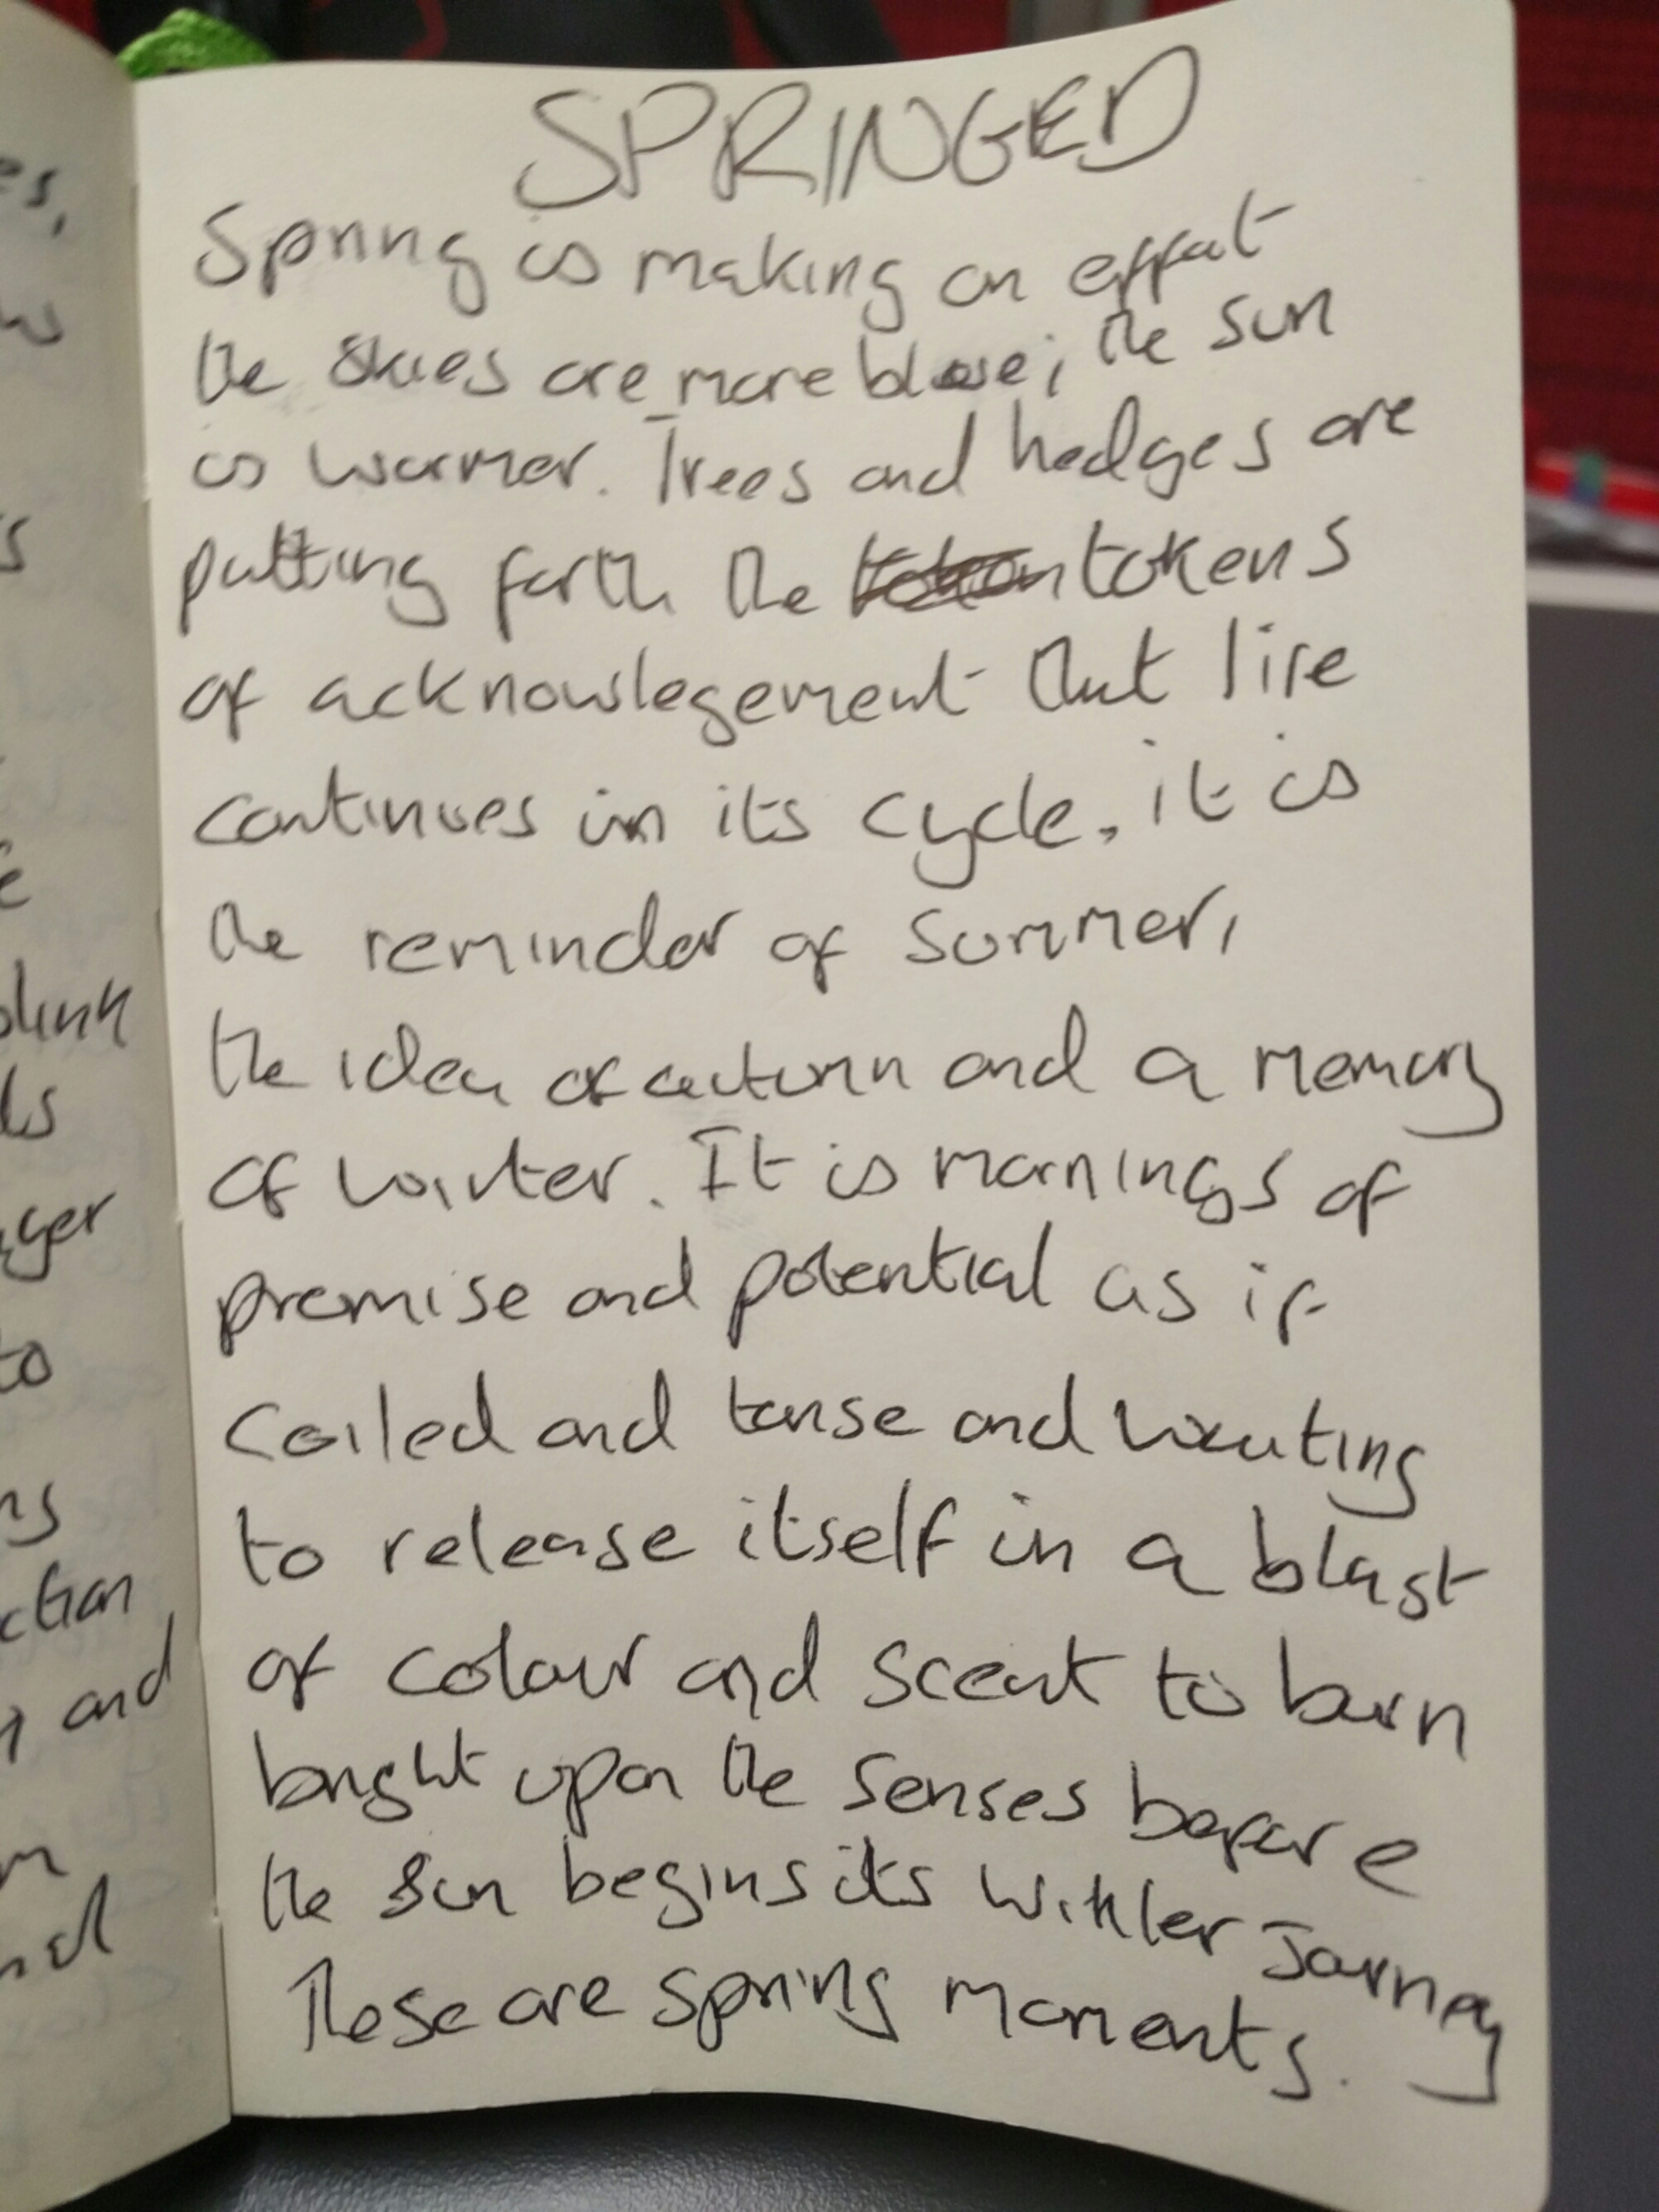 SPRINGED
Spring is making an effort
the skies are more blue; the sun
is warmer. Trees and hedges are
putting forth the tokens
of acknowlegement that life
continues in its cycle. it is
the reminder of summer,
the idea of autumn and a memory
of winter. It is mornings of
promise and potential as if
coiled and tense and waiting
to release itself in a blast
of colour and scent to burn
bright upon the senses before
the sun begins its winter journey
These are spring moments.